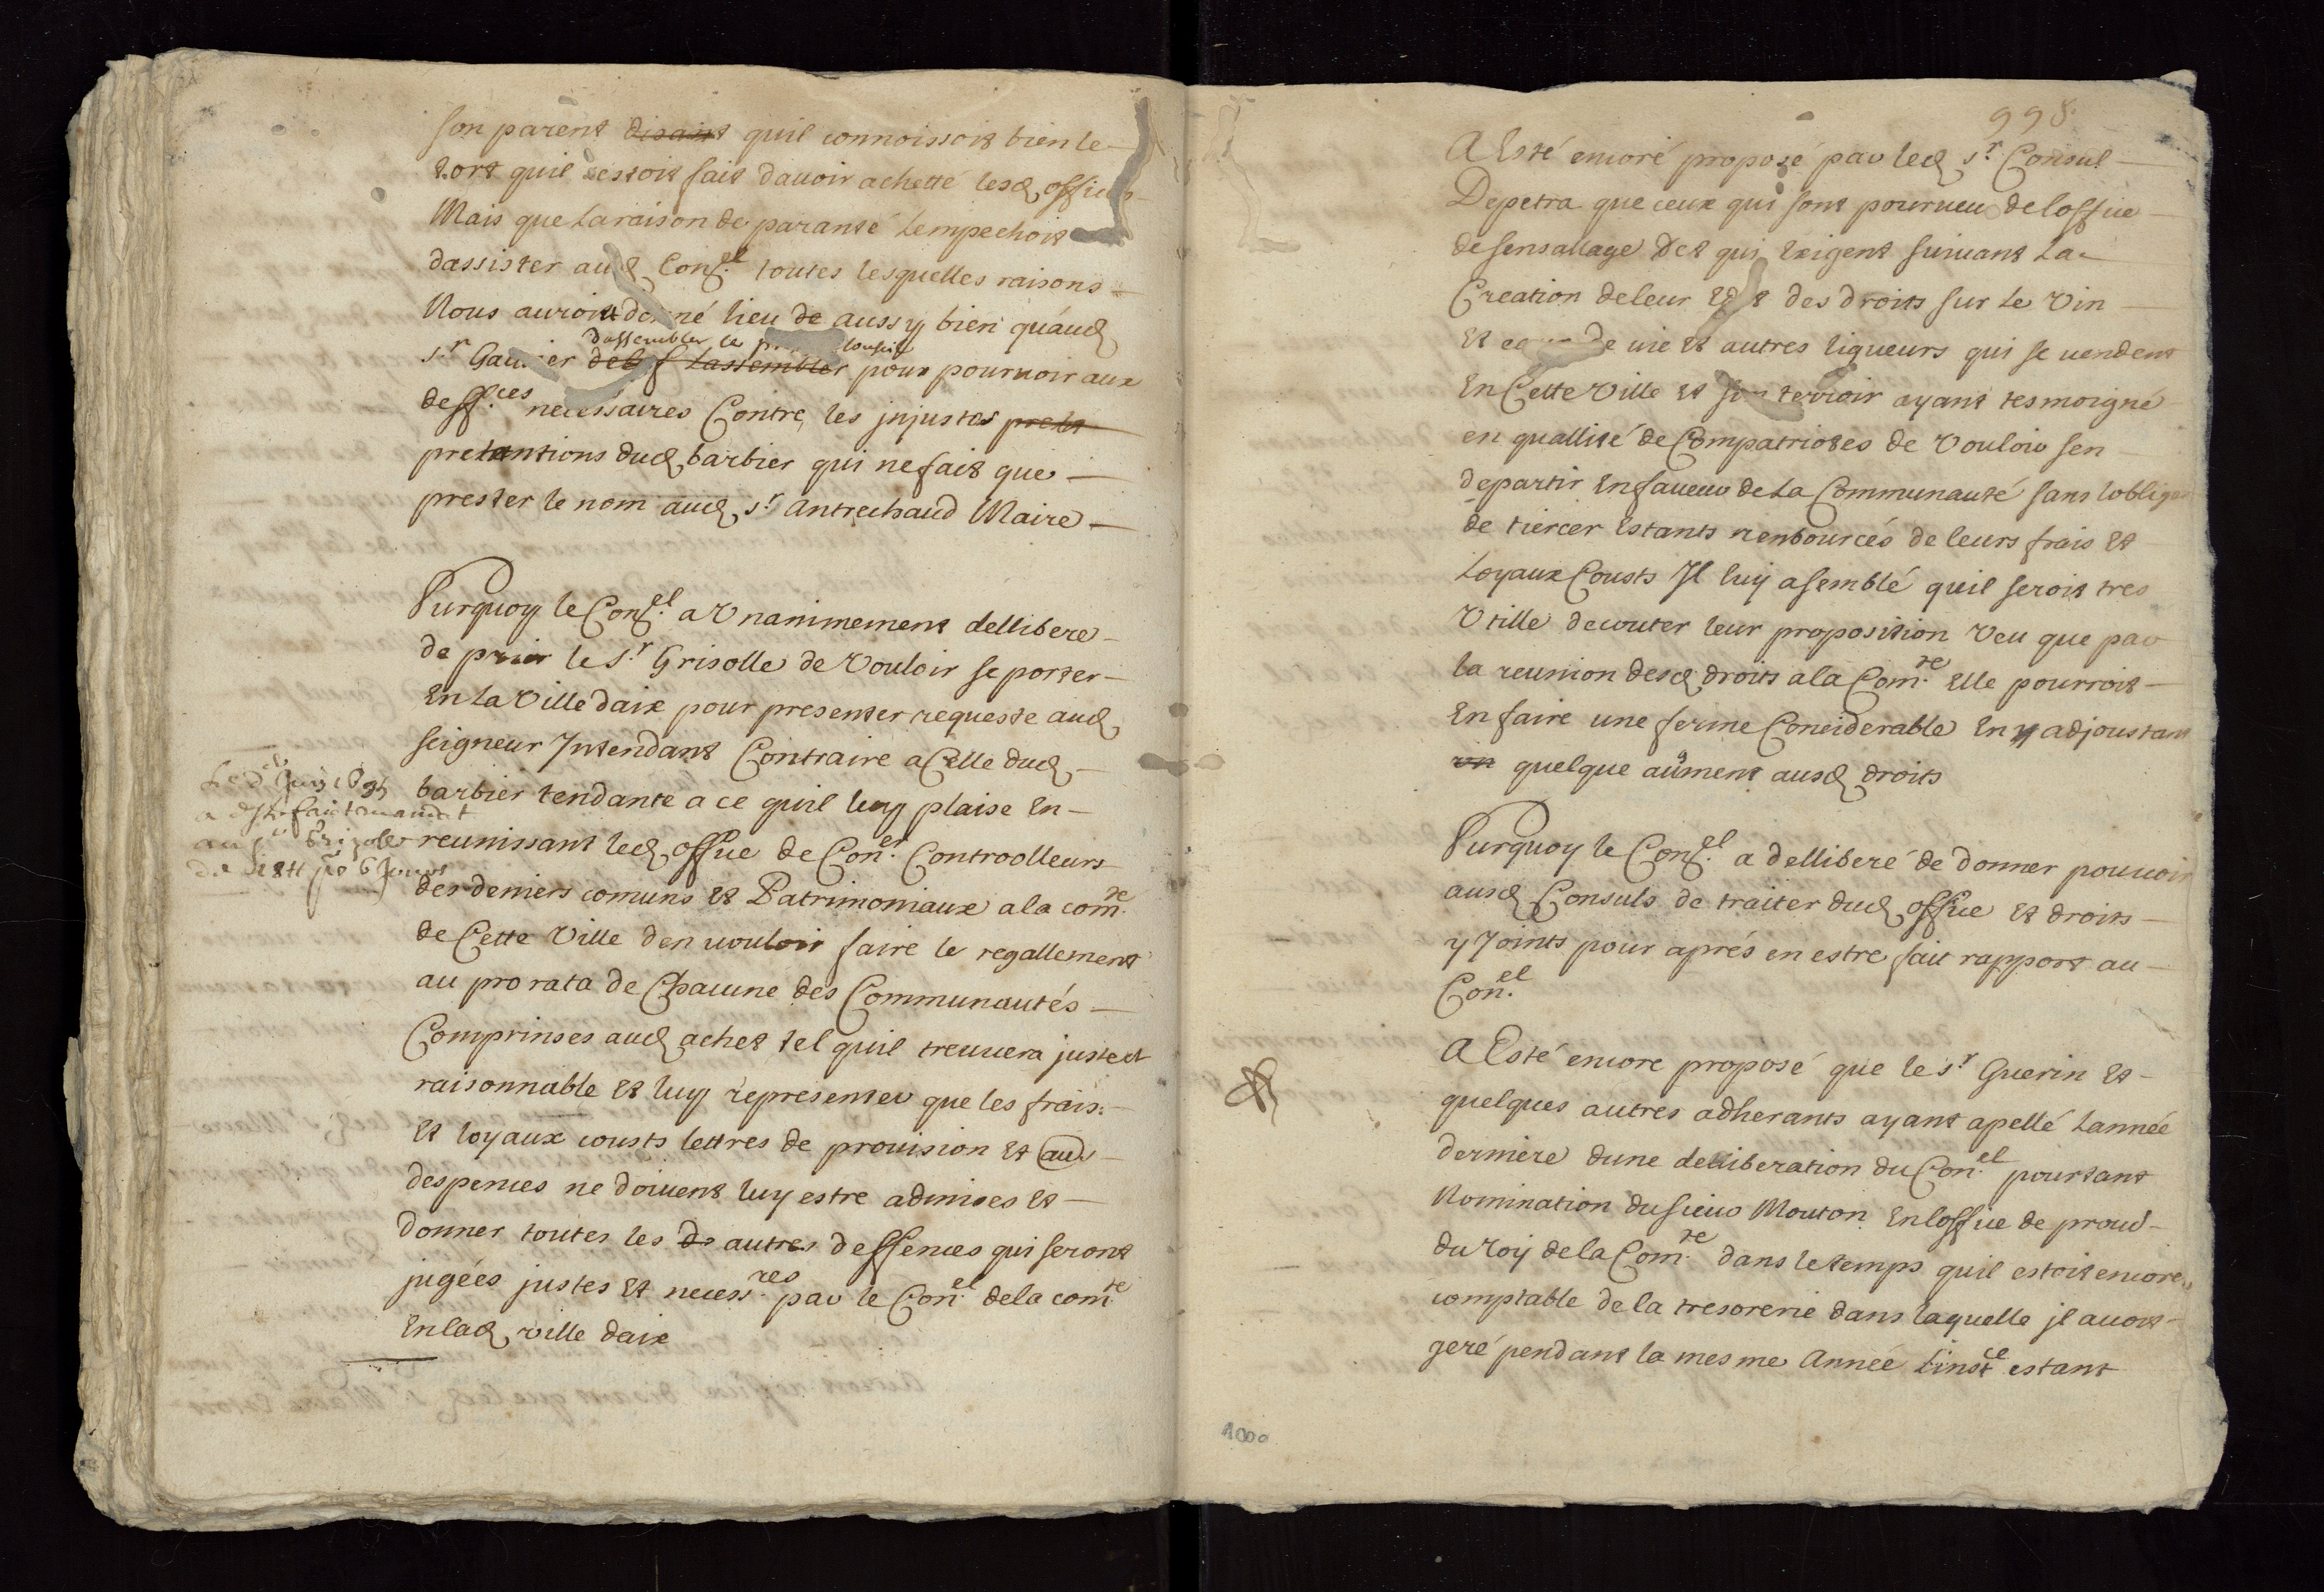 son parent disant quil connoissoit bien le
tort quil sestoit fait davoir achetté lesd offices
Mais que la raison de paranté lempechoit
dassister aud Con.el toutes lesquelles raisons
Nous auroit donné lieu de aussy bien quaud
dassembler le conseil
s.r Gautier lassembler pour pourvoir aux
deff.ces necessaires Contre les injustes prete
pretantions dud barbier qui ne fait que
prester le nom aud s.r Antrechaud Maire
Purquoy le Con.el a Unanimement dellibere
de prier le s.r Grisolle de Vouloir se porter
En la Ville daix pour presenter requeste aud
seigneur Intendant Contraire a Celle dud
barbier tendante a ce quil luy plaise En
reunissant led office de Con.er Controolleurs
des deniers comuns et Patrimoniaux a la com.te
de Cette Ville den vouloir faire le regallement
au prorata de Chacune des Communautés
Comprinses aud achet tel quil treuvera juste et
raisonnable et luy representer que les frais
et loyaux cousts lettres de provision et au.
despences ne doivent luy estre admises et
donner toutes les de autres deffences qui seront
jugées justes et necess.res par le Con.el de la com.te
En lad ville daix
a esté fait mandat
au s.r Grizolle
998
A Esté encoré proposé par led s.r Consul
Depetra que ceux qui sont pourveu de loffice
de sensallage Et qui Exigent suivant La
Creation de leur Edit des droits sur le Vin
Et eau de vie et autres liqueurs qui se vendent
En Cette Ville et son terroir ayant tesmoigné
en quallité de Compatriotes de Vouloir sen
departir En faveur de La Communauté sans lobliger
de tiercer Estants rembourcés de leurs frais et
Loyaux Cousts Il luy a semblé quil seroit tres
Utille decouter leur proposition Veu que par
la reunion desd droits a la Com.te Elle pourroit
En faire une ferme Conciderable En y adjoustant
un quelque aument ausd droits
Purquoy le Con.el a delliberé de donner pouvoir
ausd Consuls de traiter dud office et droits
y Joints pour aprés en estre fait rapport au
Con.el
A Esté encore proposé que le s.r Guerin et
quelques autres adherants ayant apellé Lannée
derniere dune delliberation du Con.el pourtant
Nomination du sieur Mouton En loffice de procu.r
du roy de la Com.te dans le temps quil estoit encore
comptable de la tresorerie dans laquelle jl avoit
geré pendant la mesme Année Linst.ce estant
1000